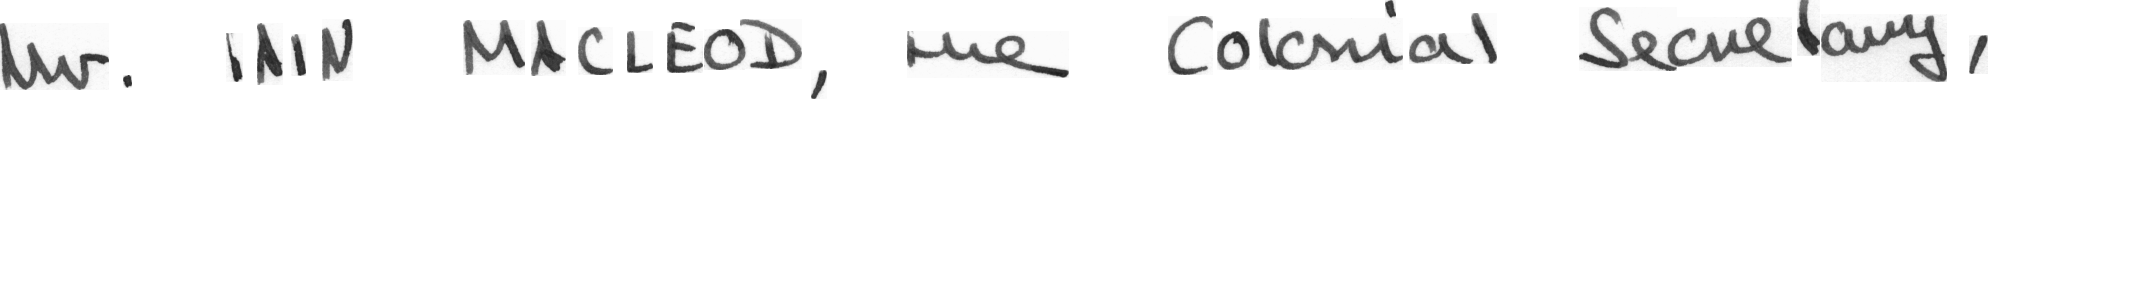 Mr. IAIN MACLEOD, the Colonial Secretary,